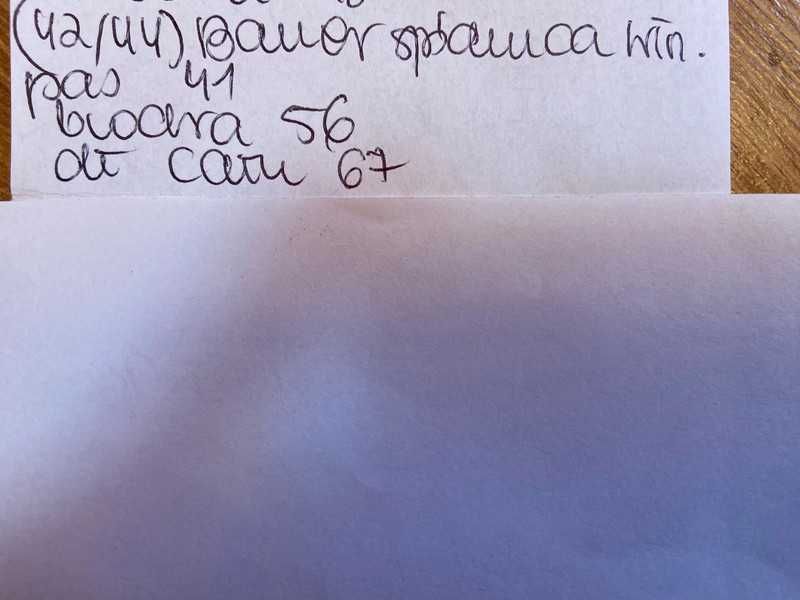 (42/44) Bauer spódnica win.
pas 41
biodra 56
dł cału 67